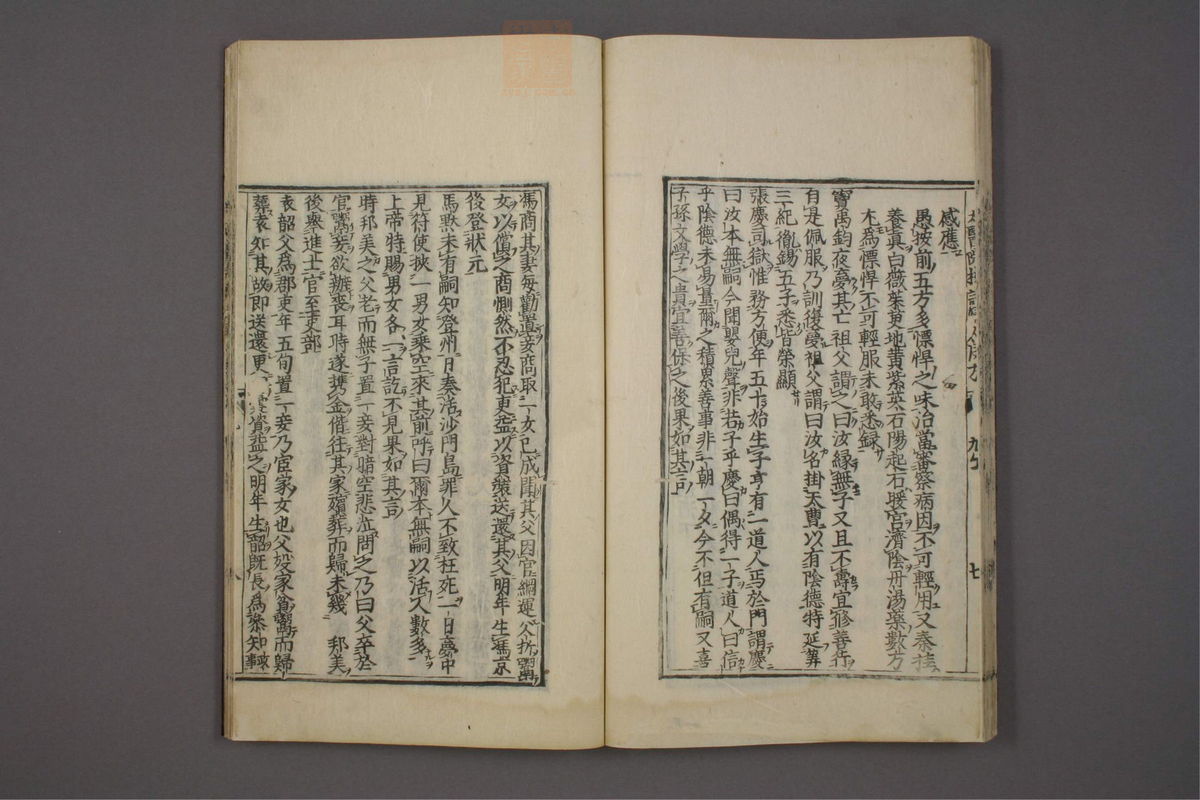 感應
愚按前五方多慓悍之味治當審察病因不可輕用又秦桂
養真白薇茱萸地黃紫英石陽起石暖宮濟陰丹湯藥數方
尤為慓悍不可輕服未敢悉録
竇禹鈞夜夢其亡祖父謂之曰汝緣無子又且不壽宜修善行
自是佩服乃訓復夢祖父謂曰汝名掛天曹以有陰德特延筭
三紀胤錫五子悉皆榮顯
張慶司獄惟務方便年五十始生子亨有一道人丐於門謂慶
曰汝本無嗣今聞嬰兒聲非若子乎慶曰偶得一子道人曰信
乎陰德未易量爾之積累善事非一朝一夕今不但有嗣又喜
子孫文學之貴宜善保之後果如其言
馮商其妻每勸置妾商取一女已成聞其父因官綱運欠折鬻
女以償之商惻然不忍犯更益以資裝送還其父明年生馮京
後登狀元
馬黙未有嗣知登州日奏活沙門島罪人不致枉死一日夢中
見符使挾一男女乘空來其前呼曰爾本無嗣以活人數多
上帝特賜男女各一言訖不見果如其言
時邦美之父老而無子置一妾對暗空悲泣問之乃曰父卒於
官鬻妾欲辦喪耳時遂携金偕往其家殯葬而歸未幾邦美
後舉進士官至吏部
袁韶父為郡吏年五旬置一妾乃宦家女也父歿家貧鬻而歸
葬袁知其故即送還更資益之明年生韶既長為參知政事